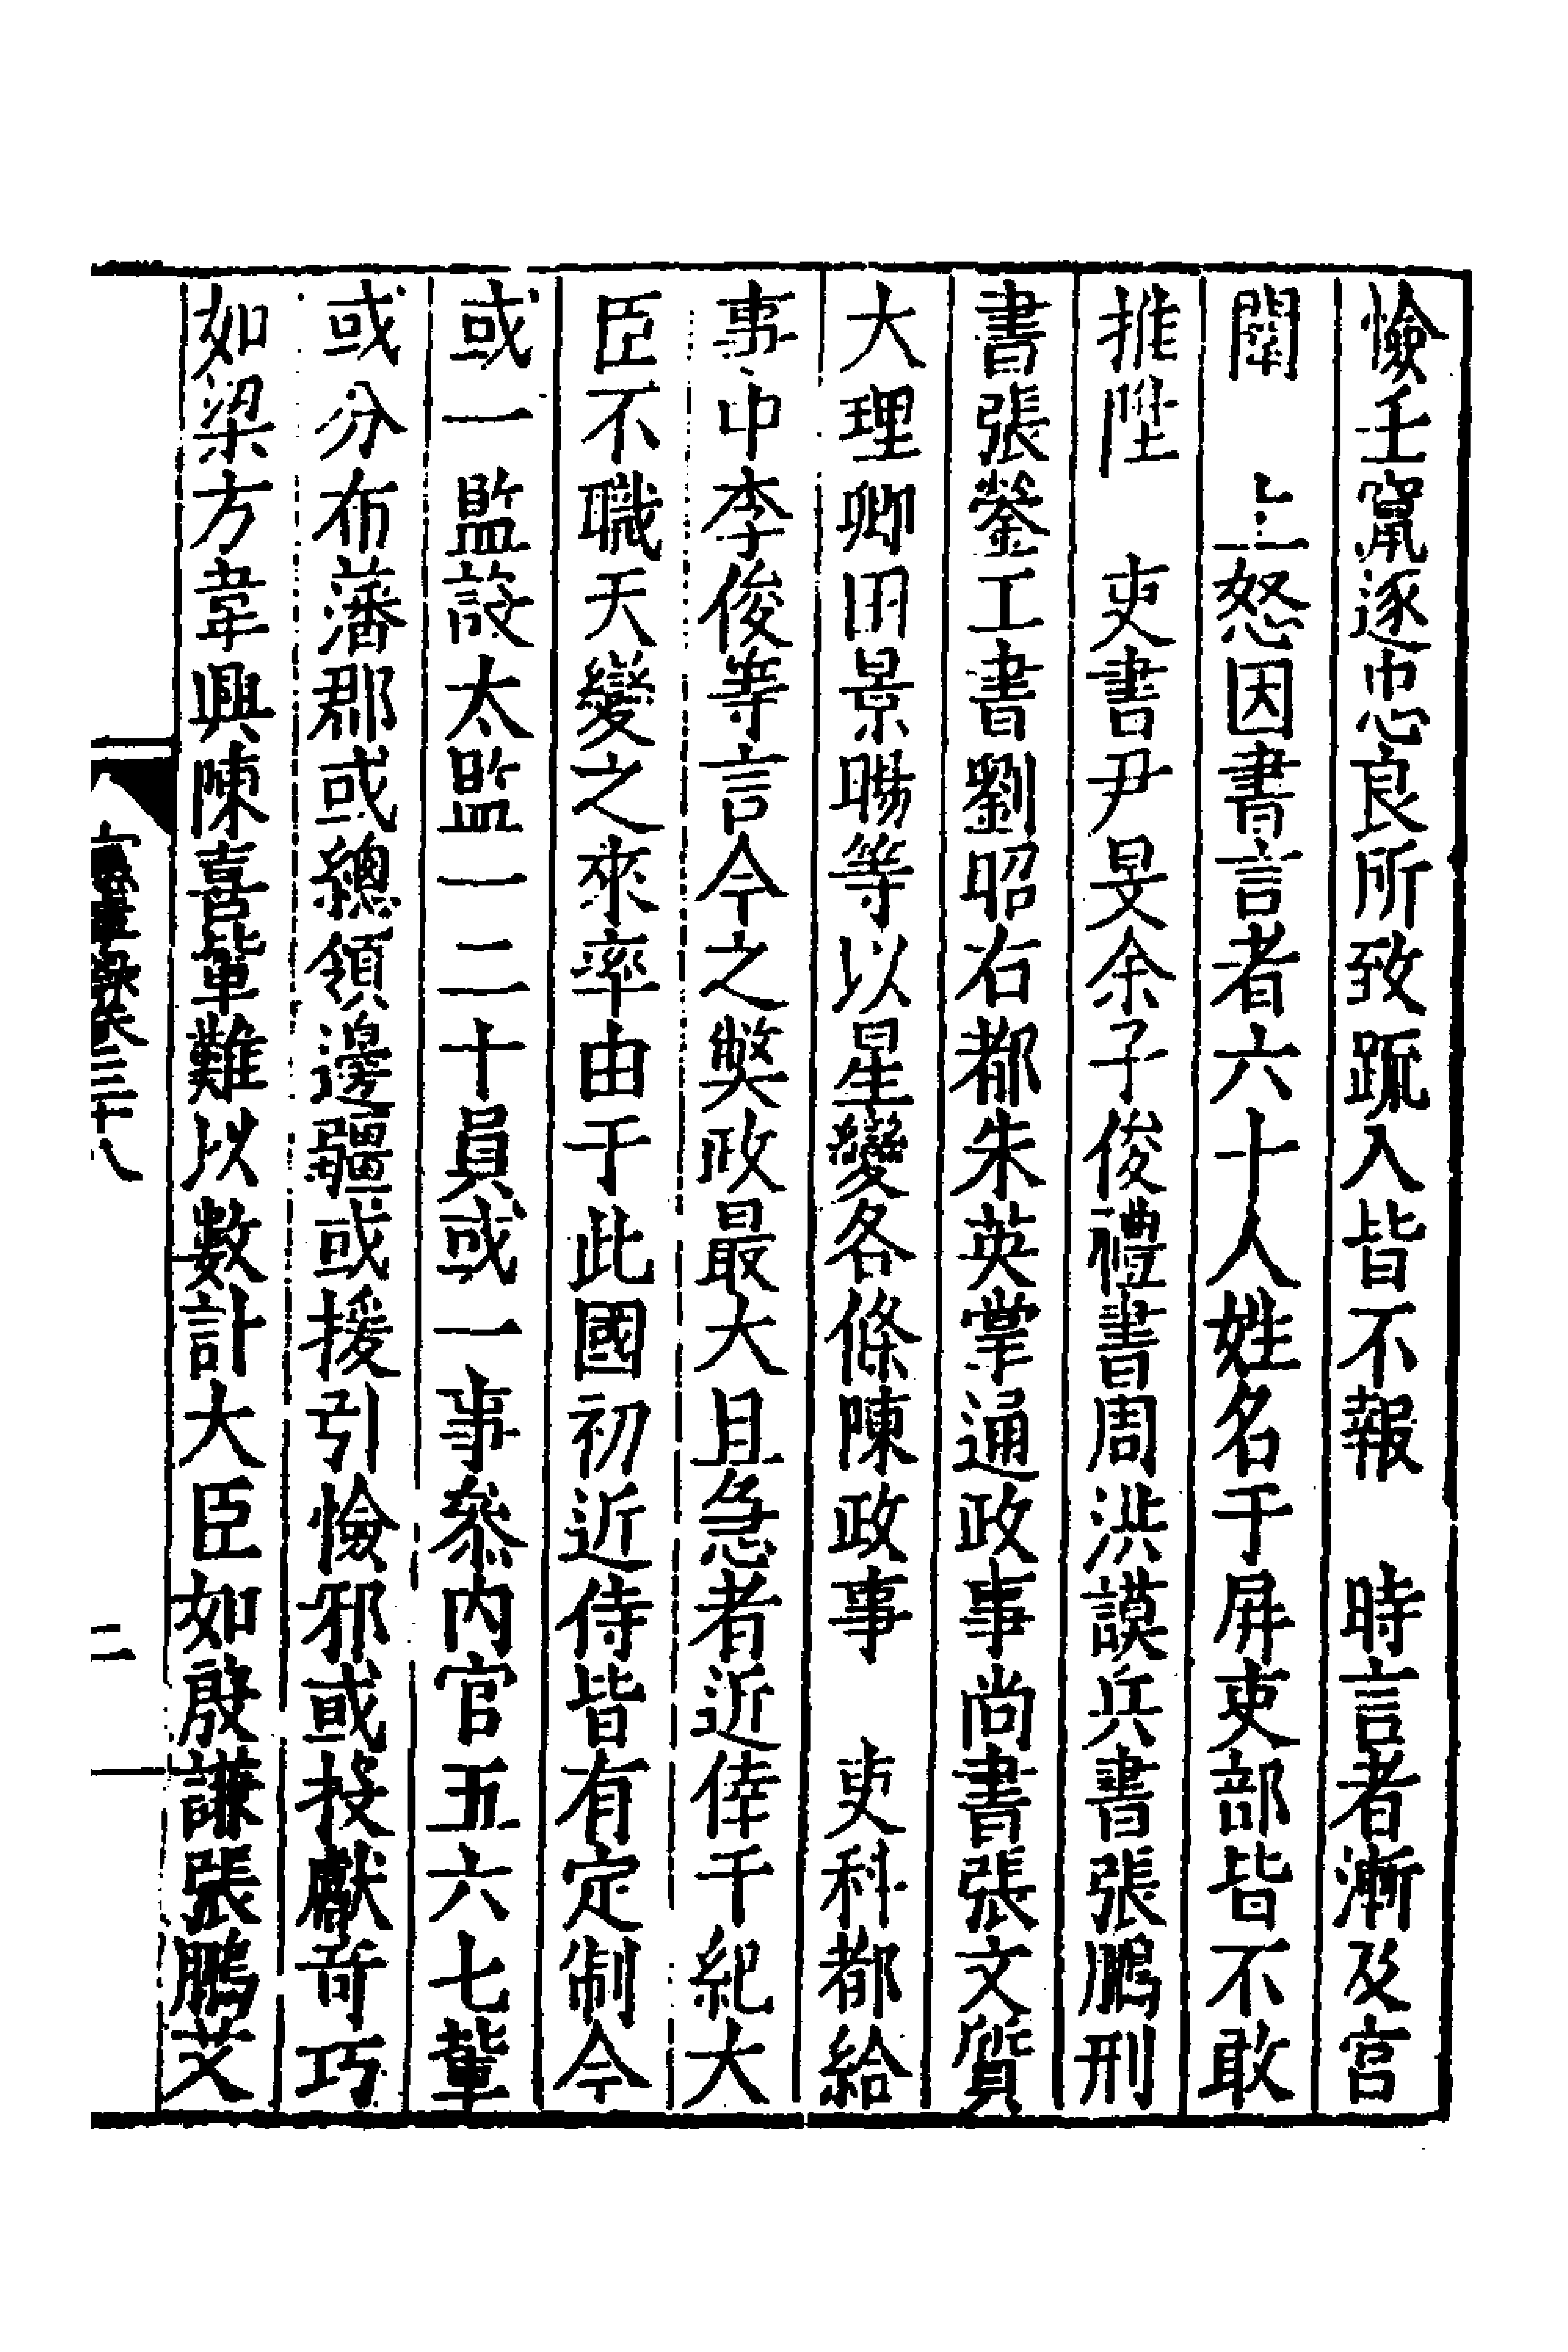 憸壬竄逐忠良所致䟽入皆不報　時言者漸及宫
闈　上怒因書言者六十人姓名于屏吏部皆不敢
推陞　吏書尹旻余子俊禮書周洪謨兵書張鵬刑
書張鎣工書劉昭右都朱英掌通政事尚書張文質
大理卿田景暘等以星變各條陳政事　吏科都給
事中李俊等言今之獘政最大且急者近倖干紀大
臣不職天變之來率由于此國初近侍皆有定制今
或一監設太監一二十員或一事叅内官五六七輩
或分布藩郡或總領邊疆或援引憸邪或投獻竒巧
如梁方韋興陳喜輩難以數計大臣如殷謙張鵬艾
三十八
二